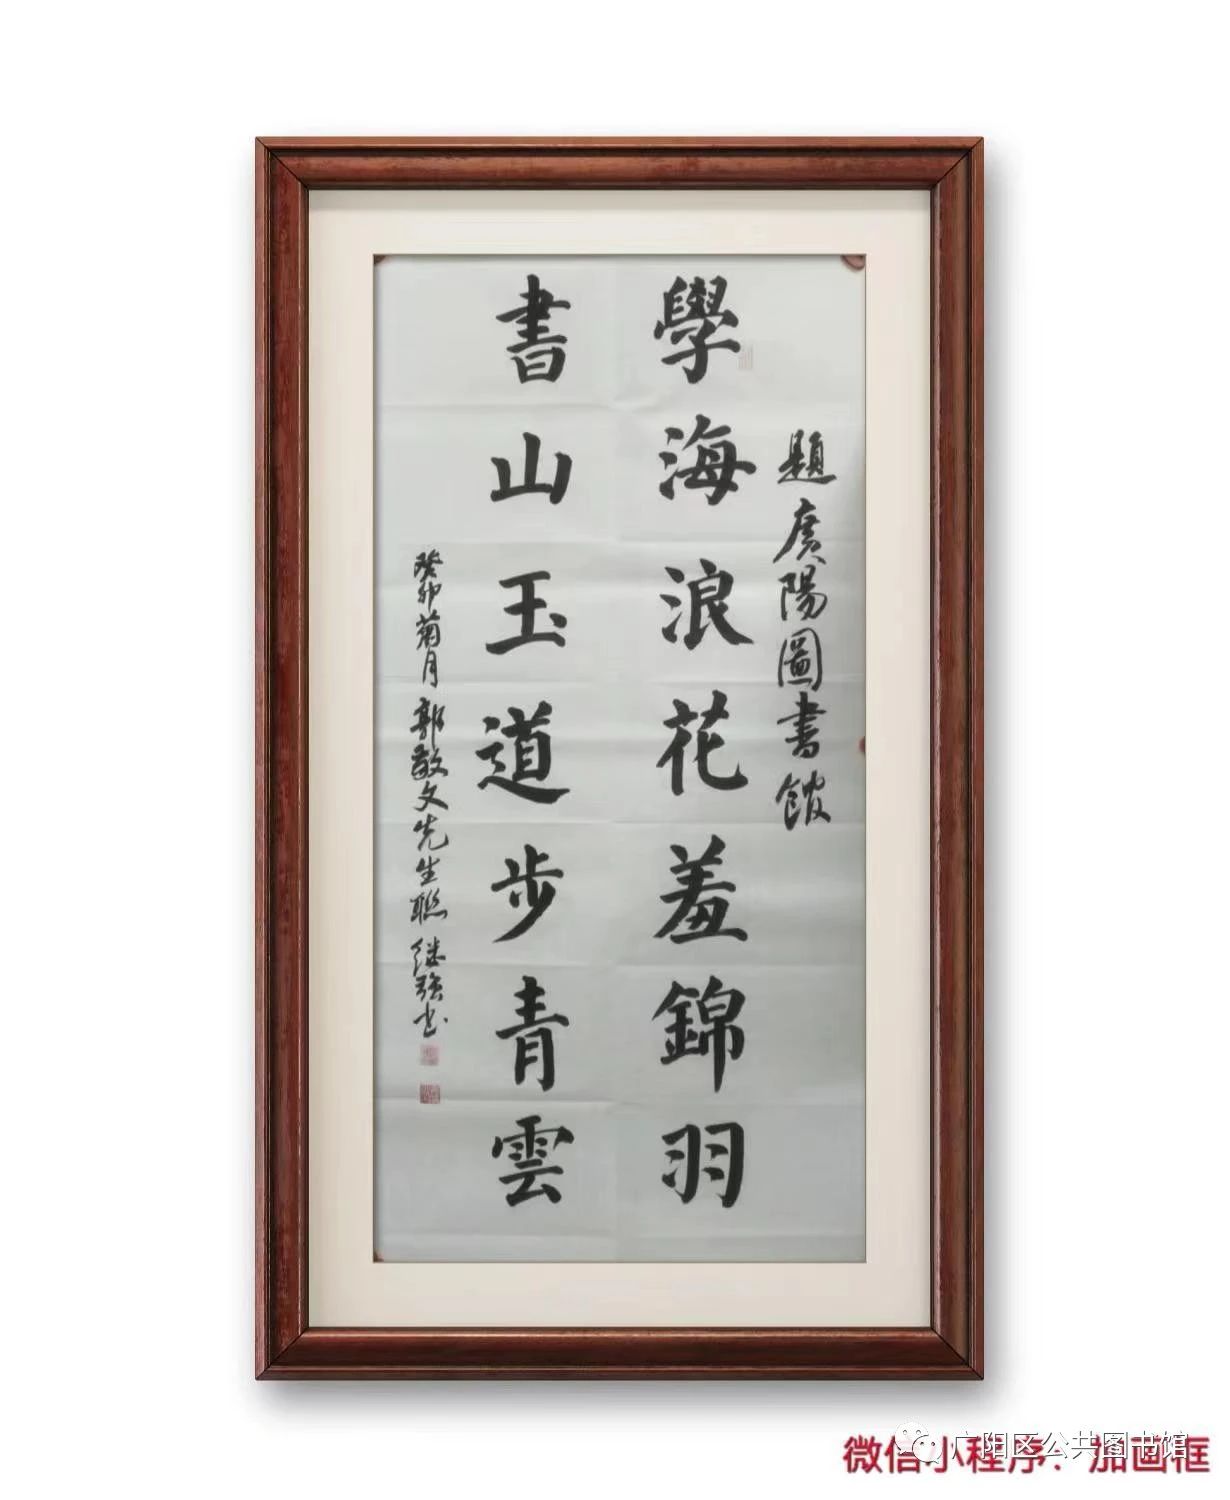 題廣陽圖書館
學海浪花羞錦羽
書山玉道步青雲
癸卯菊月郭敬文先生聯继强书
微信小程序：加画框
广阳区公共图书馆